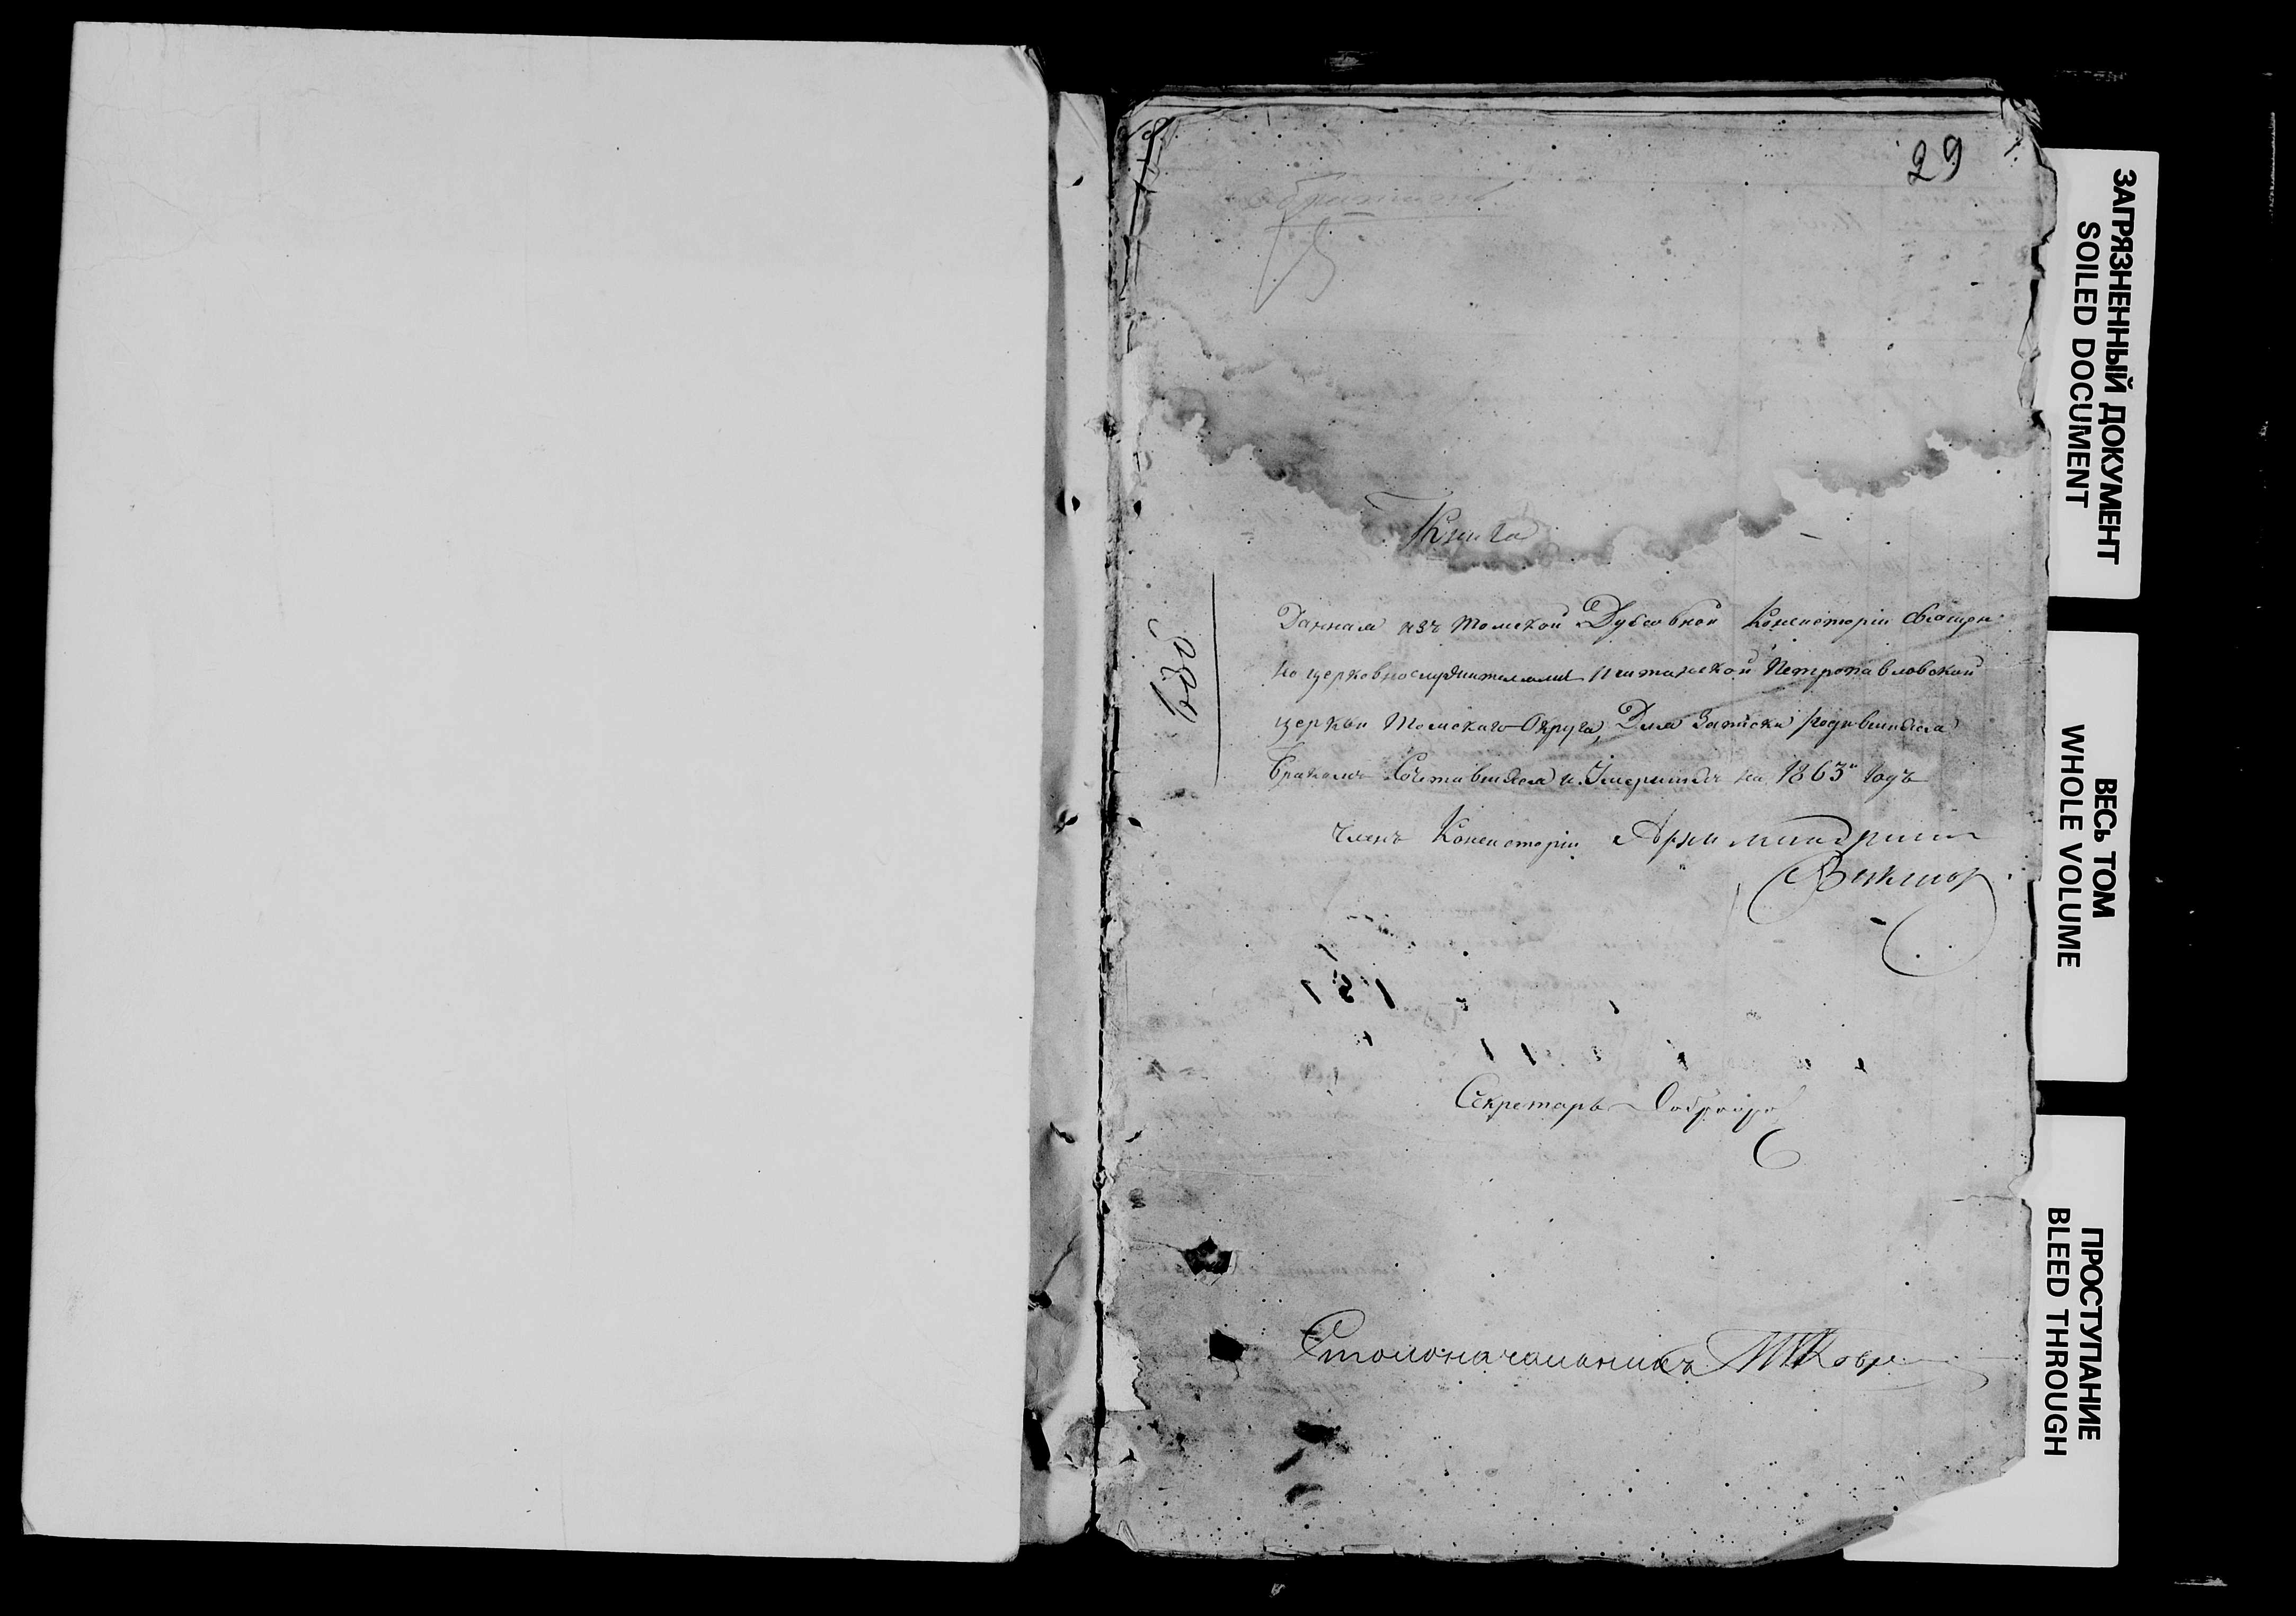 29
Книга
Данная изъ Томской Духовной Консисторіи Священ-
но церковнослужителямъ Петропавловской
церкви Томскаго Округа, Для Записки родившихся
Бракомъ Сочетавшихся и Умершихъ на 1863й годъ
Членъ Консисторіи Архимандритъ
Викторъ
Секретарь
Столоначальникъ
ЗАГРЯЗНЕННЫЙ ДОКУМЕНТ
SOILED DOCUMENT
ВЕСЬ ТОМ
WHOLE VOLUME
ПРОСТУПАНИЕ
BLEED THROUGH